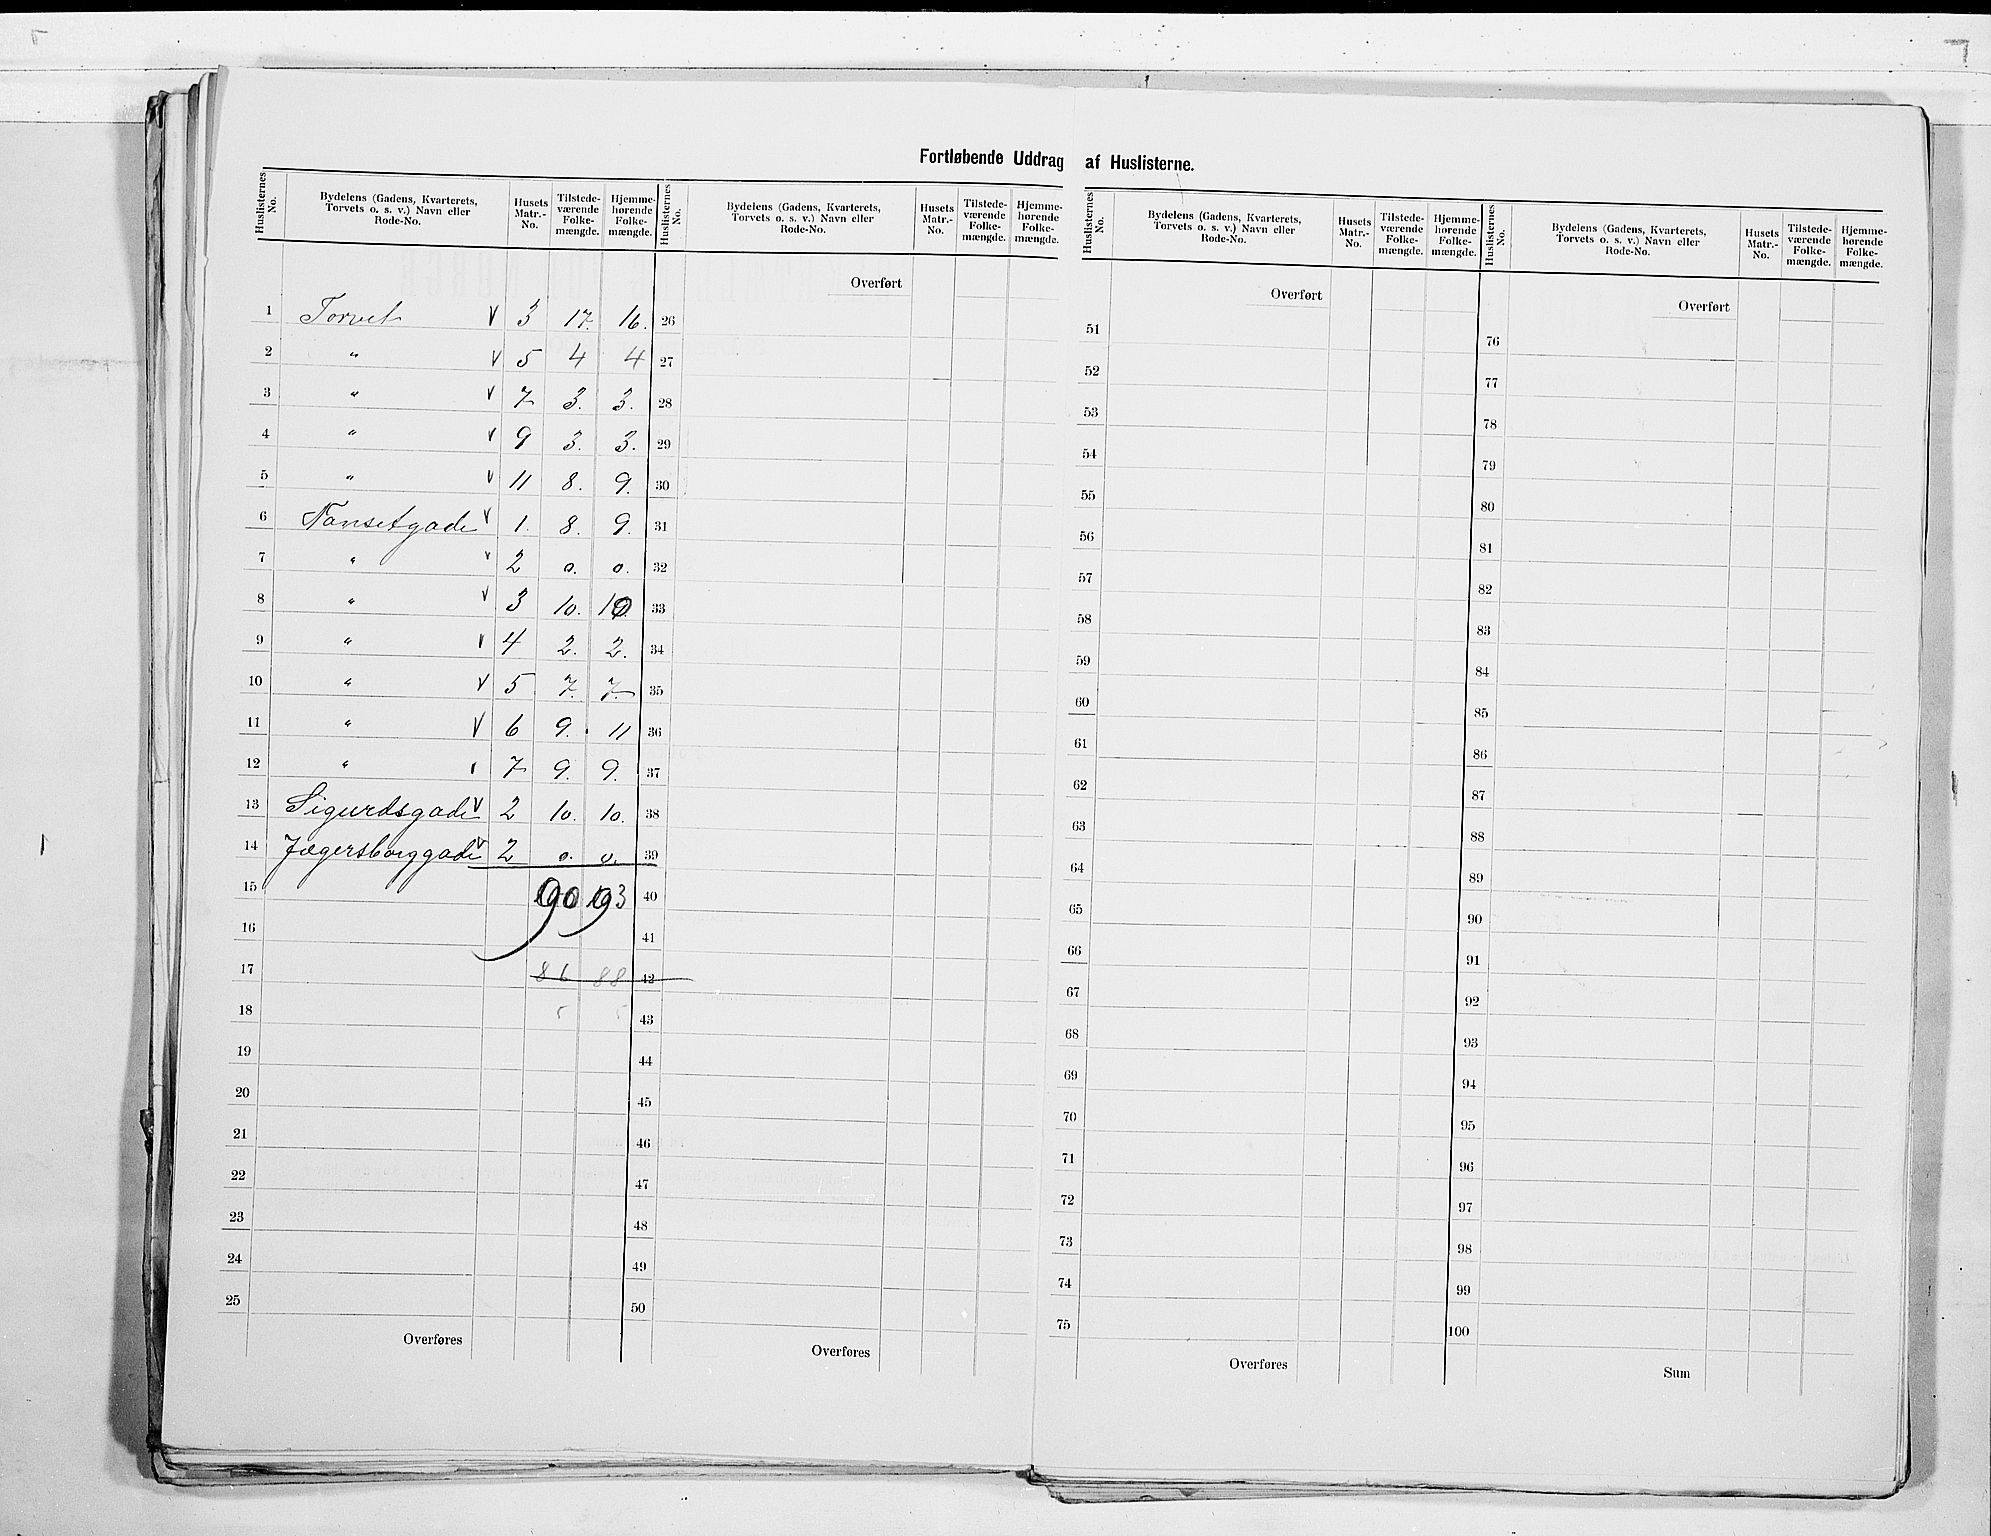 Fortløbende Uddrag af Huslisterne.
Huslisternes No. | Bydelens (Gadens, Kvarterets, Torvets o. s. v.) Navn eller Rode-No. | Husets Matr.-No. | Tilstede-værende Folke-mængde. | Hjemme-hørende Folke-mængde. | Huslisternes No. | Bydelens (Gadens, Kvarterets, Torvets o. s. v.) Navn eller Rode-No. | Husets Matr.-No. | Tilstede-værende Folke-mængde. | Hjemme-hørende Folke-mængde. | Huslisternes No. | Bydelens (Gadens, Kvarterets, Torvets o. s. v.) Navn eller Rode-No. | Husets Matr.-No. | Tilstede-værende Folke-mængde. | Hjemme-hørende Folke-mængde. | Huslisternes No. | Bydelens (Gadens, Kvarterets, Torvets o. s. v.) Navn eller Rode-No. | Husets Matr.-No. | Tilstede-værende Folke-mængde. | Hjemme-hørende Folke-mængde.
Overført Overført Overført
1 Torvet V 3 17. 16. 26 51 76
2 " V 5 4 4 27 52 77
3 " V 7 3. 3. 28 53 78
4 " V 9 3. 3. 29 54 79
5 " V 11 8. 9. 30 55 80
6 Nansetgade V 1. 8. 9. 31 56 81
7 " V 2 0. 0. 32 57 82
8 " V 3 10. 10. 33 58 83
9 " V 4 2. 2. 34 59 84
10 " V 5 7. 7. 35 60 85
11 " V 6 9. 11 36 61 86
12 " 7 9. 9. 37 62 87
13 Sigurdsgade V 2 10. 10. 38 63 88
14 Jægersborggade V 2 0. 0. 39 64 89
15 90 93 40 65 90
16 41 66 91
17 86 88 42 67 92
18 5 5 43 68 93
19 44 69 94
20 45 70 95
21 46 71 96
22 47 72 97
23 48 73 98
24 49 74 99
25 50 75 100
Overføres Overføres Overføres Sum